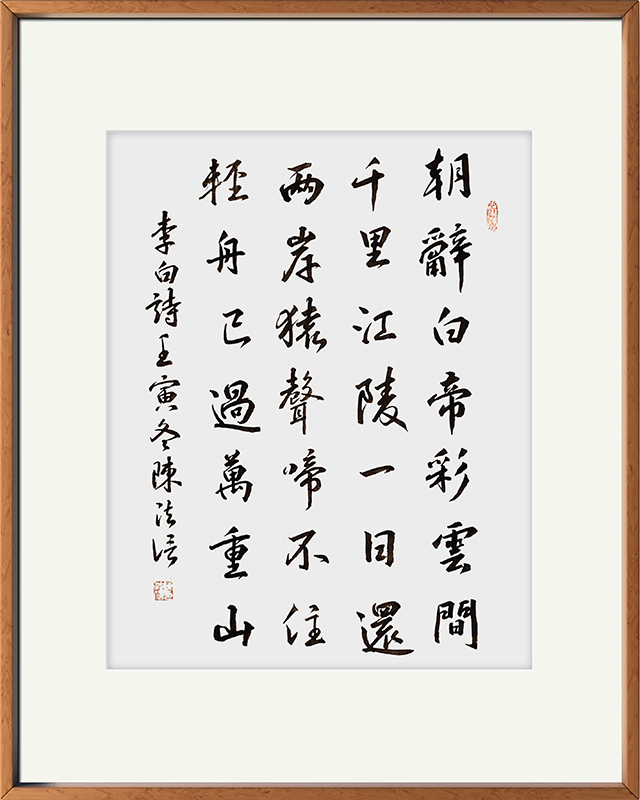 朝辭白帝彩雲間
千里江陵一日還
兩岸猿聲啼不住
輕舟已過萬重山
李白詩壬寅冬陳法